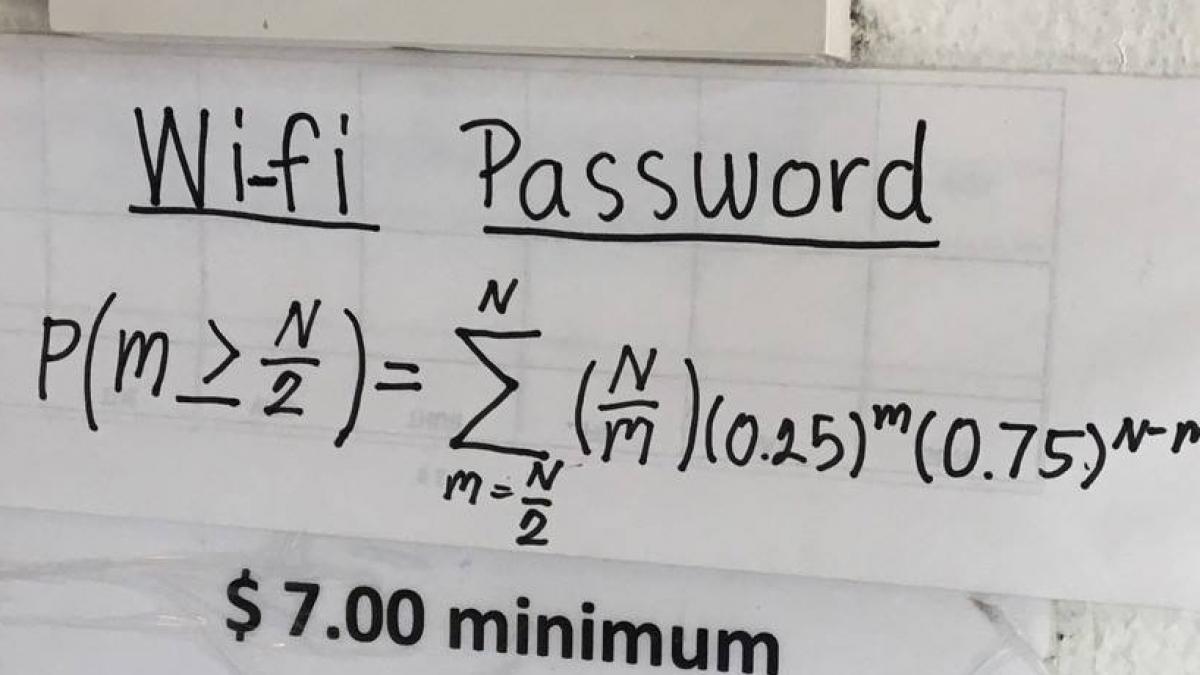 Wi-fi Password
P(m ≥ N/2) = ∑_{m=N/2}^{N} (N/m)(0.25)^m(0.75)^{N-m}
$7.00 minimum